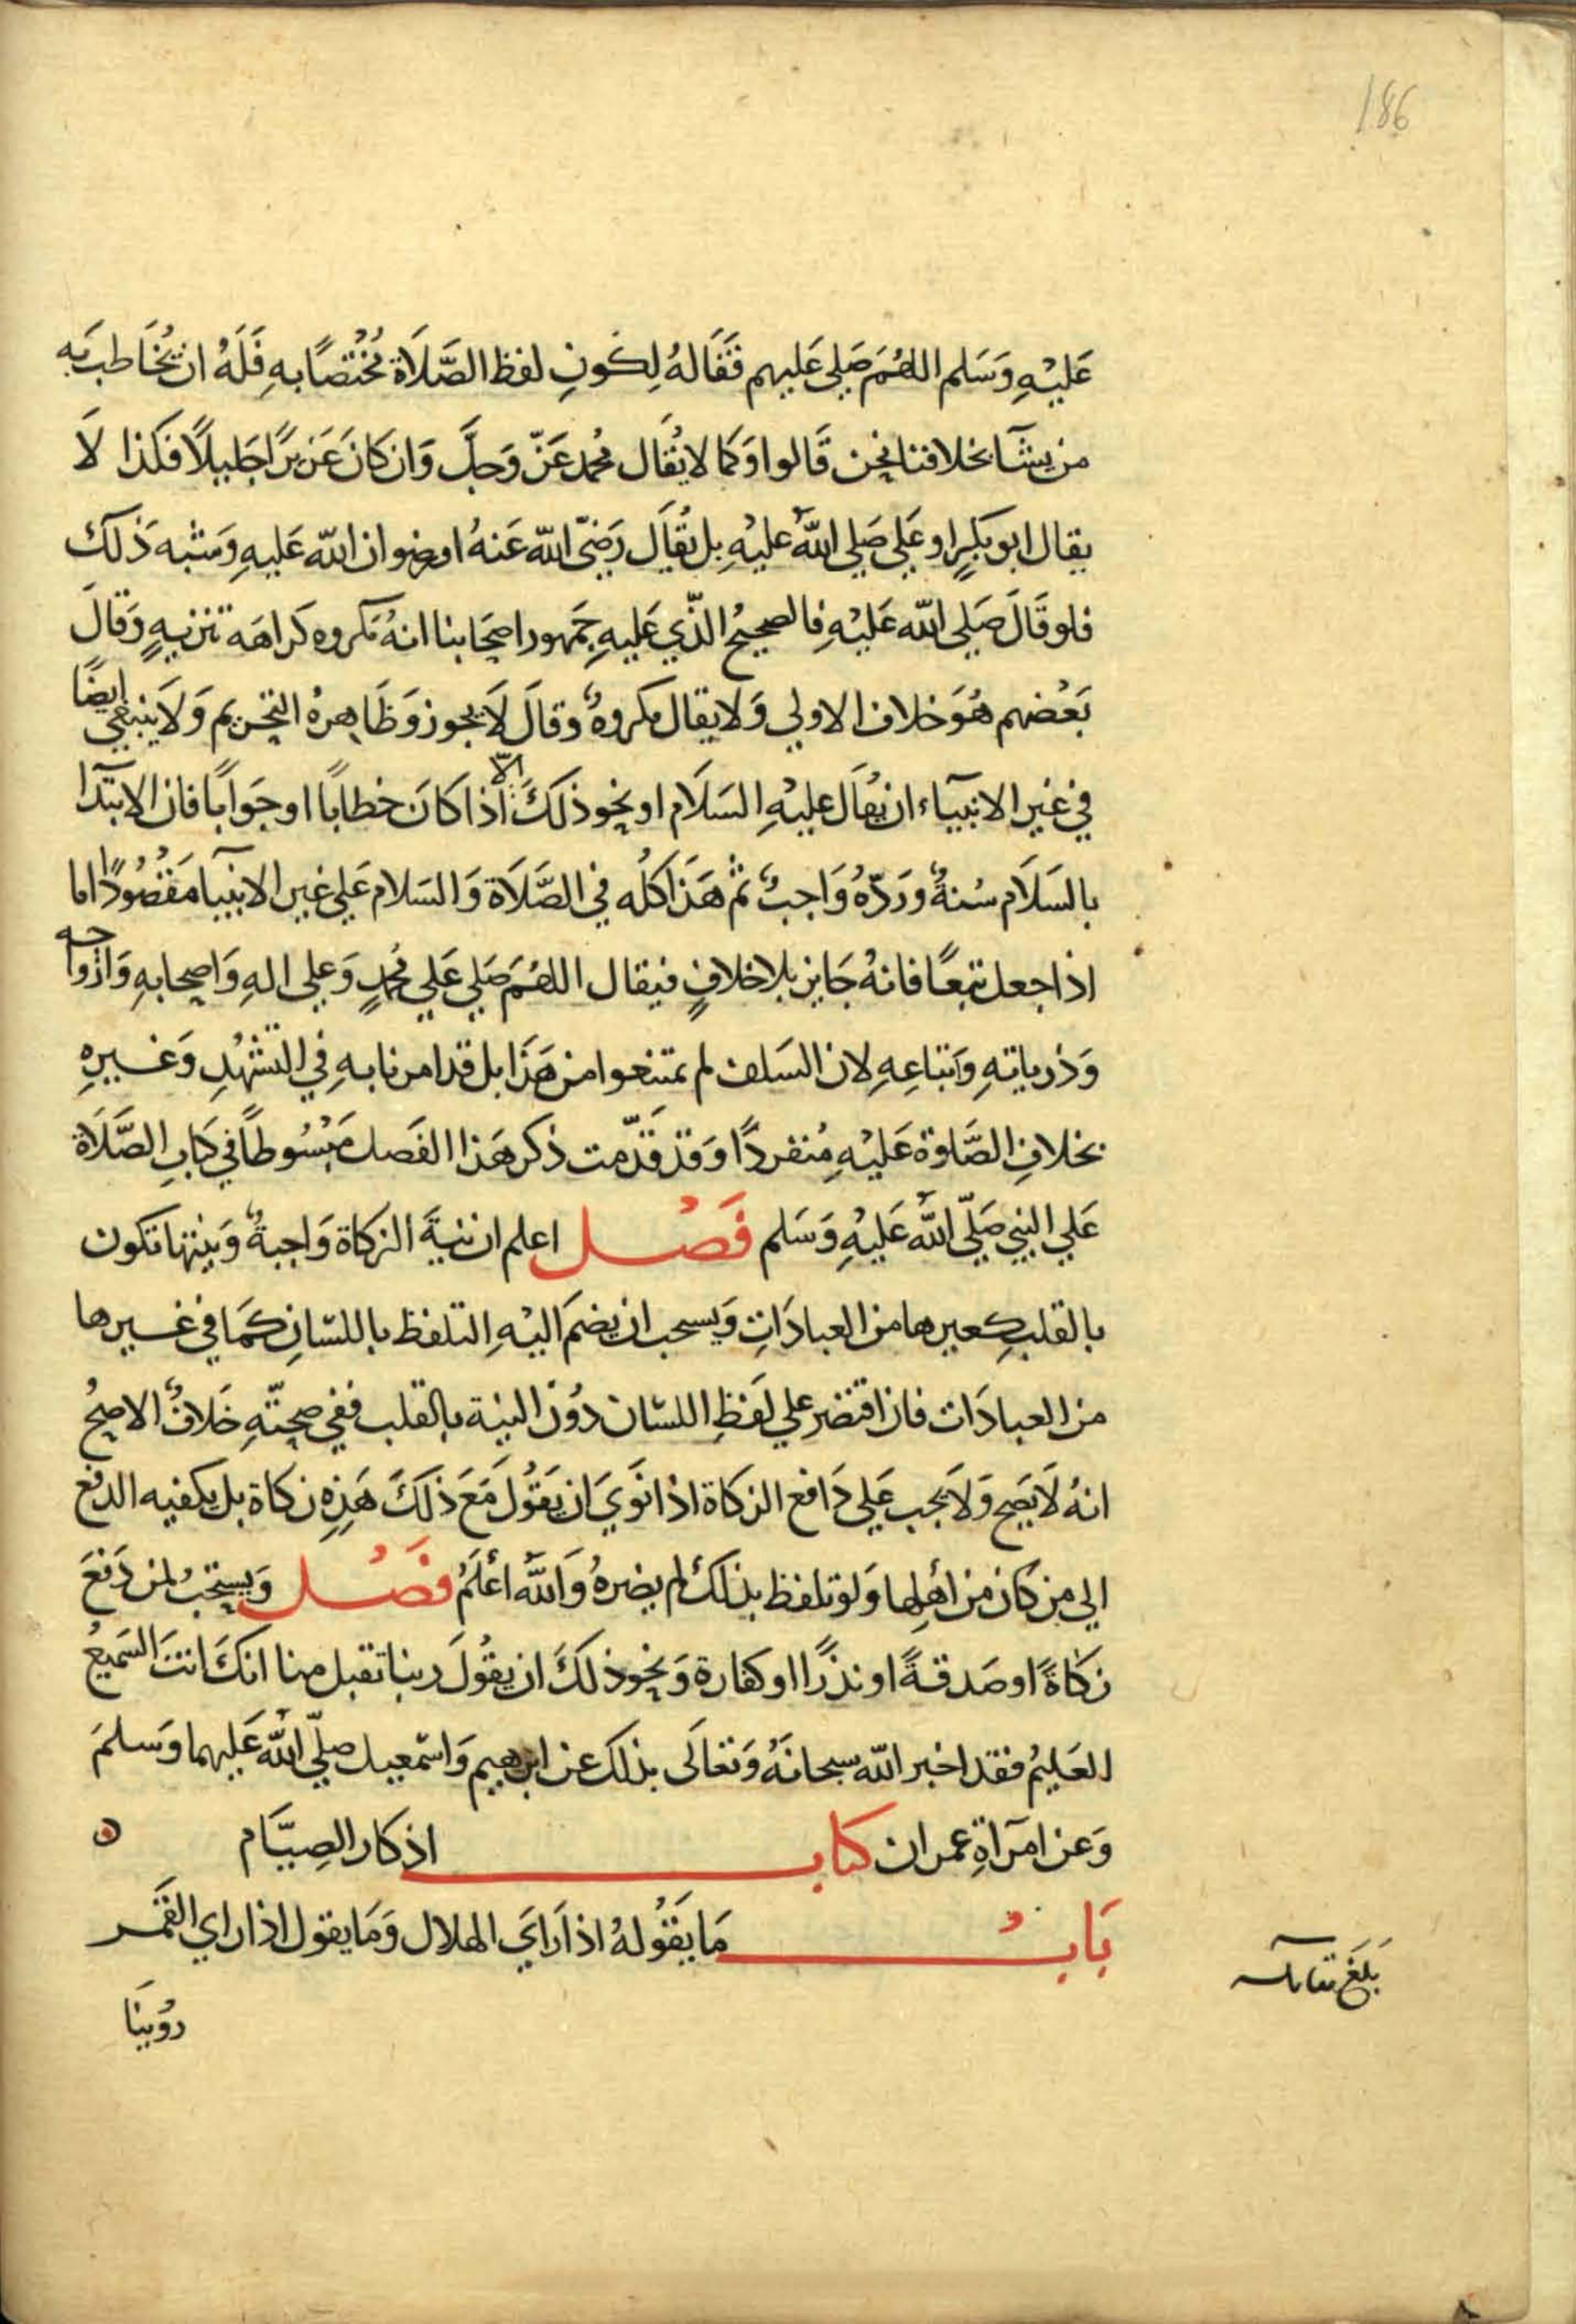 186
عَليْهِ وَسَلم اللهُمَ صَلِى عَليهم فَقَالهُ لِكَونِ لفظ الصَّلَاة مُخْتصًا بهِ فَلَهُ ان يُخَاطب بَه
من يشَآ بخلافنا نحن قَالوا وَكما لا يُقَال محُمد عَزّ وَجلَّ وَان كانَ عَزيزًا جَليلًا فكذا لَا
يقال ابو بَكرٍ او عَلي صَلى اللّهُ عليْهِ بل يُقَال رَضىَ اللّه عَنهُ او رضوان اللّه عَليهِ وَشبه ذَلكَ
فلو قَالَ صَلى اللّه عَليْهِ فالصحيحُ الذّي عَليهِ جَمهور اصحَابنا انهُ مَكروه كَراهَة تنزيهٍ وَقالَ
بَعْضهم هُوَ خلاف الاولي وَلا يقال مكروهٌ وقالَ لَا يجوز وَظَاهِرهُ التحريم وَلَا ينبغي ايضًا
في غير الانبيَآء ان يُقَال عليهِ السَلَام او نحو ذلكَ الّا اذا كَانَ خطابًا او جَوَابًا فان الابتدَآ
بالسَلَام سُنةٌ وَرَدّهُ وَاجبٌ ثم هَذا كلُه في الصَّلَاة وَالسَلام عَلي غير الانبيَآ مَقصُودًا اما
اذا جعل تبَعًا فانهُ جَايز بلا خلافٍ فيقال اللهُمَ صَلِى عَلي محُمدٍ وَعلى الهِ وَاصحابهِ وَازواجه
وَذرياتهِ وَاتباعِهِ لان السَلف لم يمتنعوا من هَذَا بل قد امرنا بهِ في التشَهُدِ وَغَيرهِ
بخلافِ الصَّلوة عَليْهِ مُنفردًا وَقد قَدّمت ذكر هَذا الفَصل مَبْسُوطًا في كتاب الصَّلَاة
عَلي النبي صَلّى اللّهُ عَليْهِ وَسَلم فَصْل اعلم ان نيَةَ الزكاة وَاجبةٌ وَنيتها تكون
بالقلبِ كغيرها من العبادَاتِ وَيسحب ان يضمَ اليْهِ التلفظ باللسَانِ كمَا في غَيرها
من العبادَات فان اقتصَر علي لَفظِ اللسَان دُوْن النية بالقلب ففي صحتّهِ خَلافٌ الاصحُ
انهُ لَا يَصح وَلَا يجب عَلى دَافع الزكَاة اذا نَوَي ان يَقُولَ مَعَ ذلكَ هَذِهِ زكاة بل يكفيه الدفع
الي من كان من اهْلِها وَلو تلفظ بذلكَ لم يضرهُ وَاللّهُ اعْلَمُ فصْل وَيستحبُ لمن دَفعَ
زكاةً او صَدقةً او نذرًا او كفارة وَنحوذلكَ ان يقُولَ ربنا تقبل منا انكَ انتَ السَميعُ
العَليمُ فقد اخبر اللّه سبحانَهُ وَتعَالَى بذلكَ عن ابرهيم وَاسمعيل صَلّى اللّهُ عَليهما وَسَلمَ
وَعن امرَاةِ عمران كتاب اذكار الصِيَّام ه
بَابُ مَا يَقُولهُ اذا رَايَ الهلال وَمَا يقول اذا راي القمَر
بَلَغَ مقابلة
روُينَا